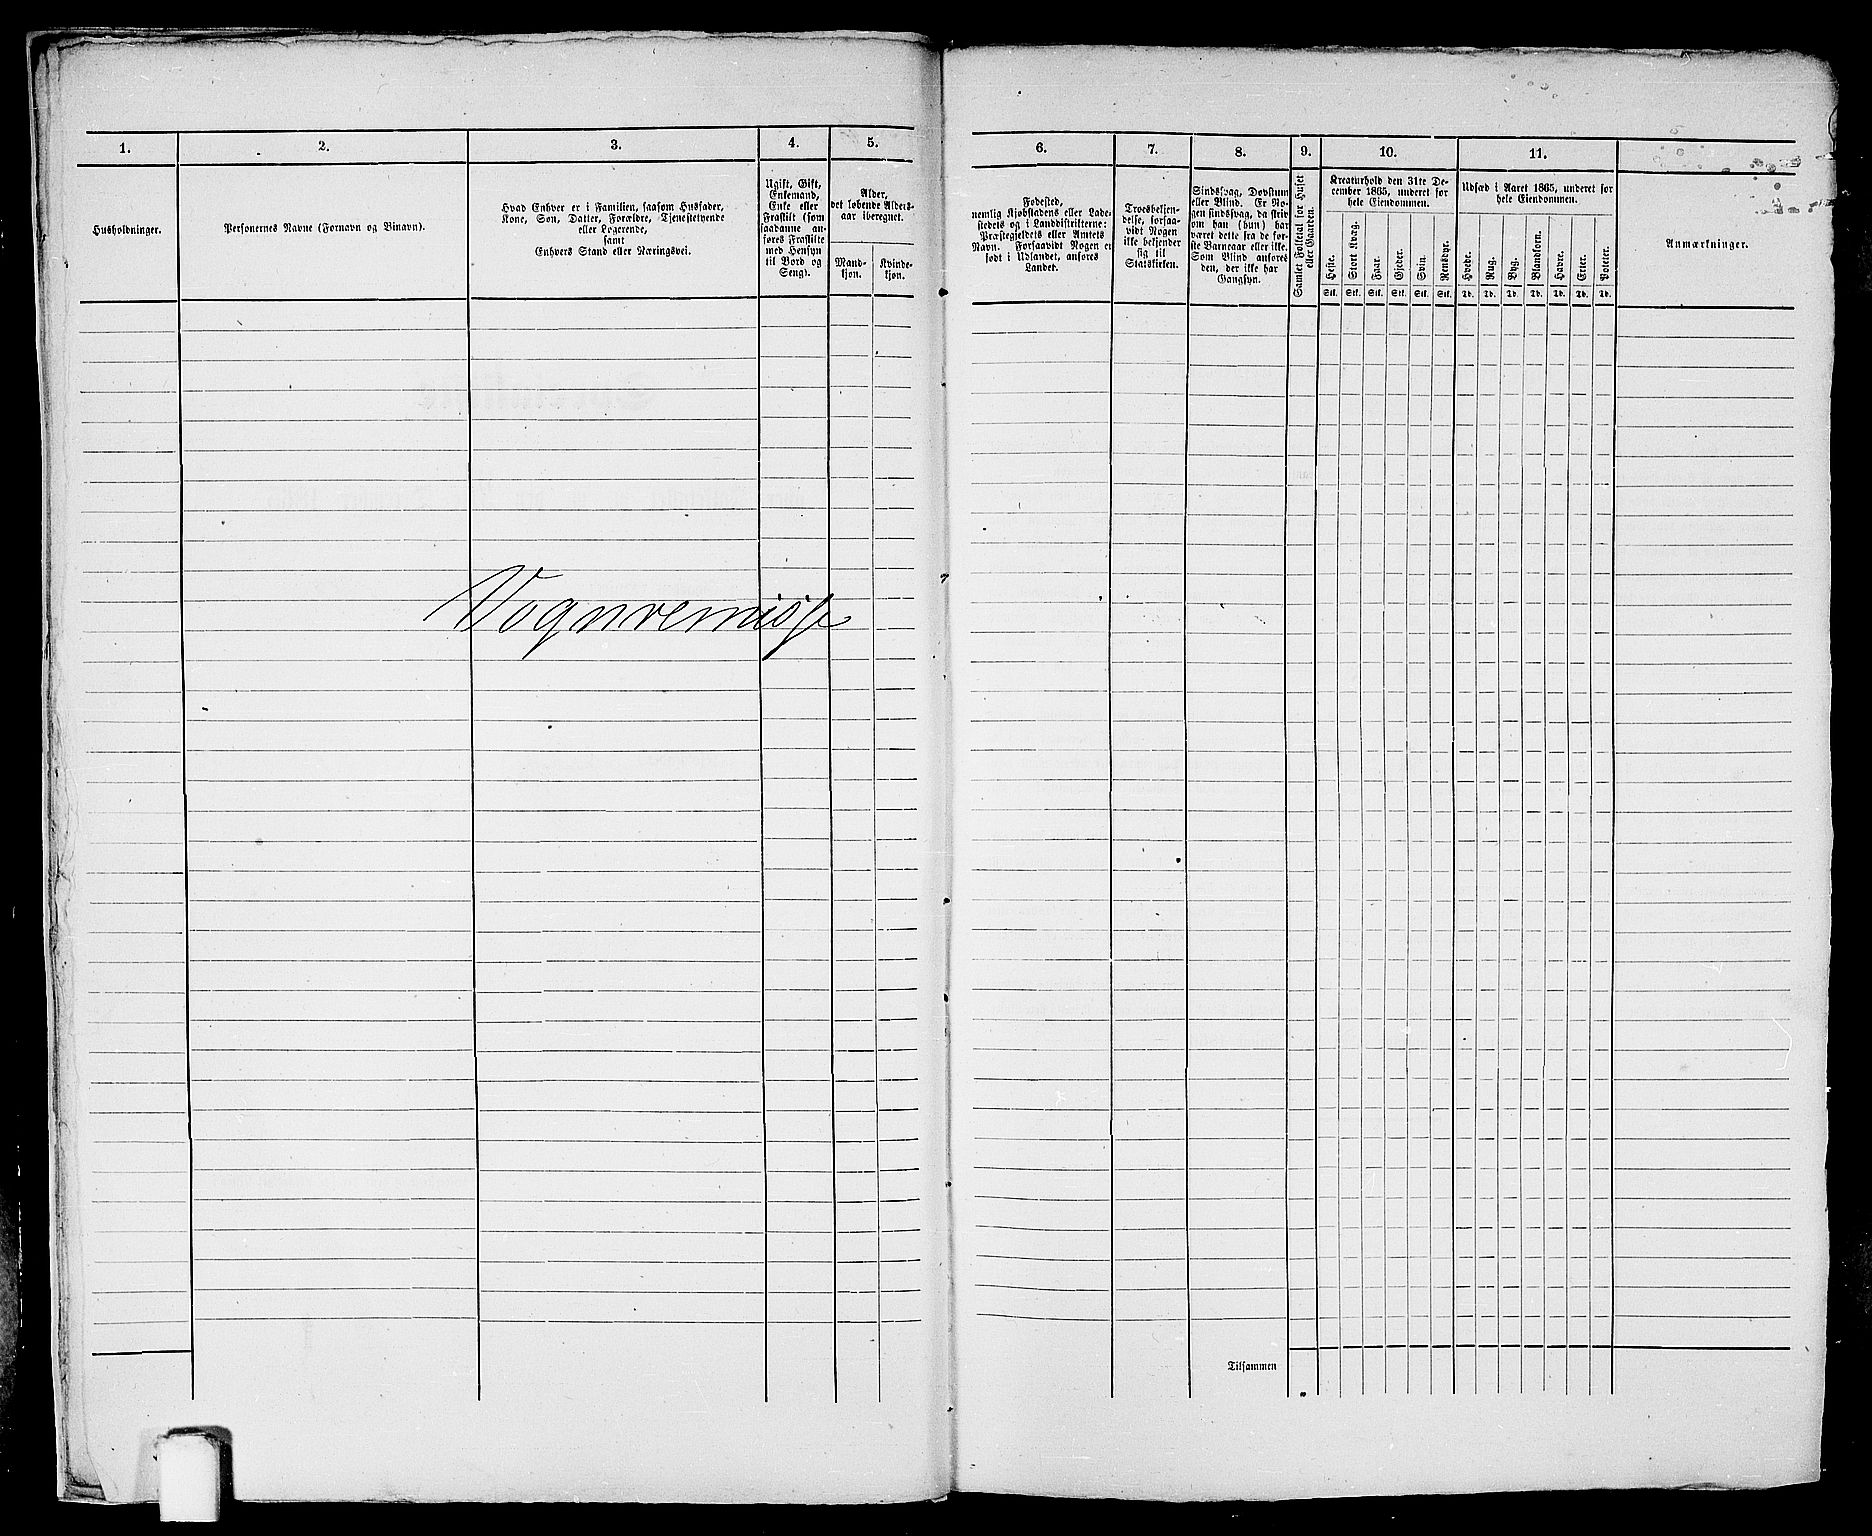 1.
2.
3.
4.
5.
Husholdninger.
Personernes Navne (Fornavn og Binavn).
Hvad Enhver er i Familien, saasom Husfader,
Kone, Søn, Datter, Forældre, Tjenestetyende
eller Logerende,
samt
Enhvers Stand eller Næringsvei.
Ugift, Gift,
Enkemand,
Enke eller
Fraskilt (som
saadanne an-
føres Fraskilte
med Hensyn
til Bord og
Seng).
Alder,
det løbende Alders-
aar iberegnet.
Mand-
kjøn.
Kvinde-
kjøn.
Vognremisse
6.
7.
8.
9.
10.
11.
Fødested,
nemlig Kjøbstadens eller Lade-
stedets og i Landdistrikterne:
Præstegjeldets eller Amtets
Navn. Forsaavidt Nogen er
født i Udlandet, anføres
Landet.
Troesbekjen-
delse, forsaa-
vidt Nogen
ikke bekjender
sig til
Statskirken.
Sindssvag, Døvstum
eller Blind. Er No-
gen sindssvag, da skriv
om han (hun) har
været dette fra de før-
ste Barneaar eller ikke.
Som Blind anføres
den, der ikke har
Gangsyn.
Samlet Folketal for Huset
eller Gaarden.
Kreaturhold den 31te De-
cember 1865, underet for
hele Eiendommen.
Heste.
Stort Kvæg.
Faar.
Gjeder.
Svin.
Rensdyr.
Stk. Stk. Stk. Stk. Stk. Stk.
Udsæd i Aaret 1865, underet for
hele Eiendommen.
Hvede.
Rug.
Byg.
Blandkorn.
Havre.
Erter.
Poteter.
Td. Td. Td. Td. Td. Td. Td.
Anmærkninger.
Tilsammen